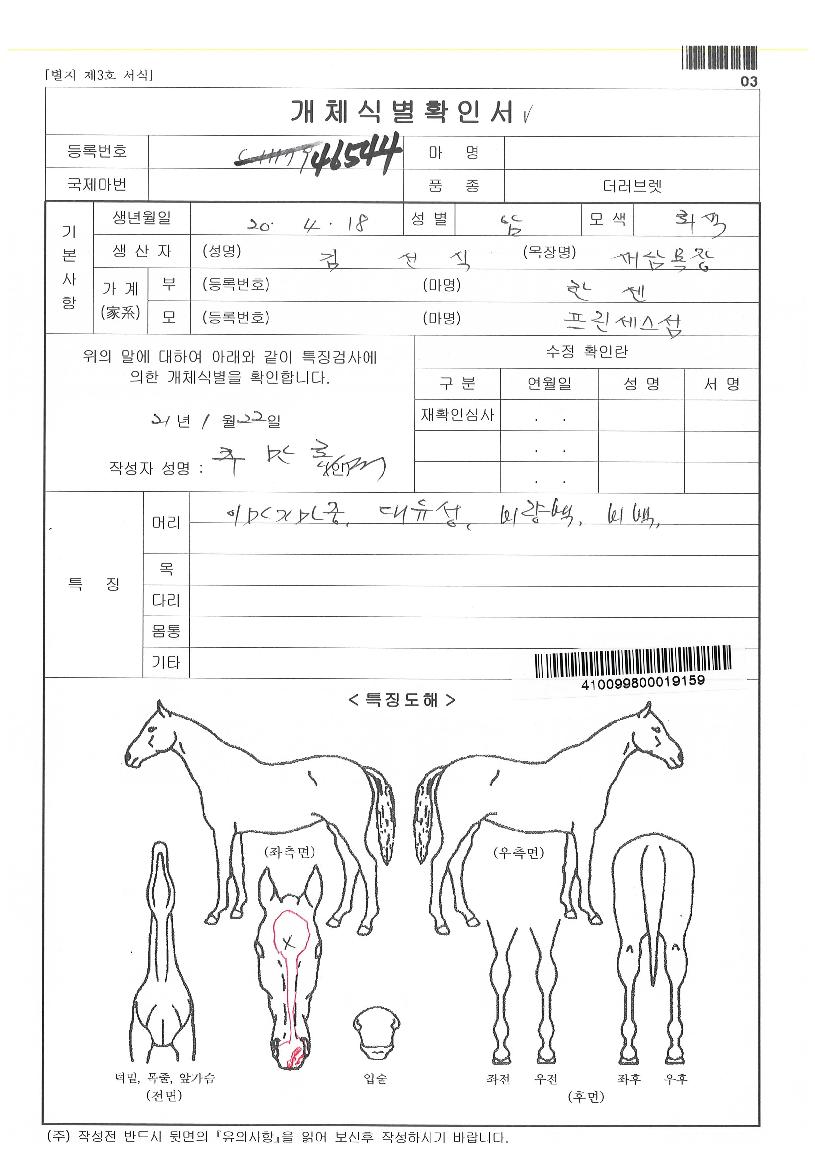 03
[별지 제3호 서식]
개체식별확인서
등록번호 46544 마 명
국제마번 품 종 더러브렛
기본사항
생년월일 20. 4. 18 성 별 모 색
생 산 자 (성명) 김 선 식 (목장명)
가 계 (家系) 부 (등록번호) (마명) 한 센
모 (등록번호) (마명) 프린세스섬
위의 말에 대하여 아래와 같이 특징검사에
의한 개체식별을 확인합니다.
21년 1월 22일
작성자 성명 :
수정 확인란
구 분 연월일 성 명 서 명
재확인심사 . .
. .
. .
특 징
머리 대유성, 비량백, 비백,
목
다리
몸통
기타
410099800019159
< 특징도해 >
(좌측면) (우측면)
턱밑, 목줄, 앞가슴
(전면)
입술
좌전 우전 좌후 우후
(후면)
(주) 작성전 반드시 뒷면의 『유의사항』을 읽어 보신후 작성하시기 바랍니다.